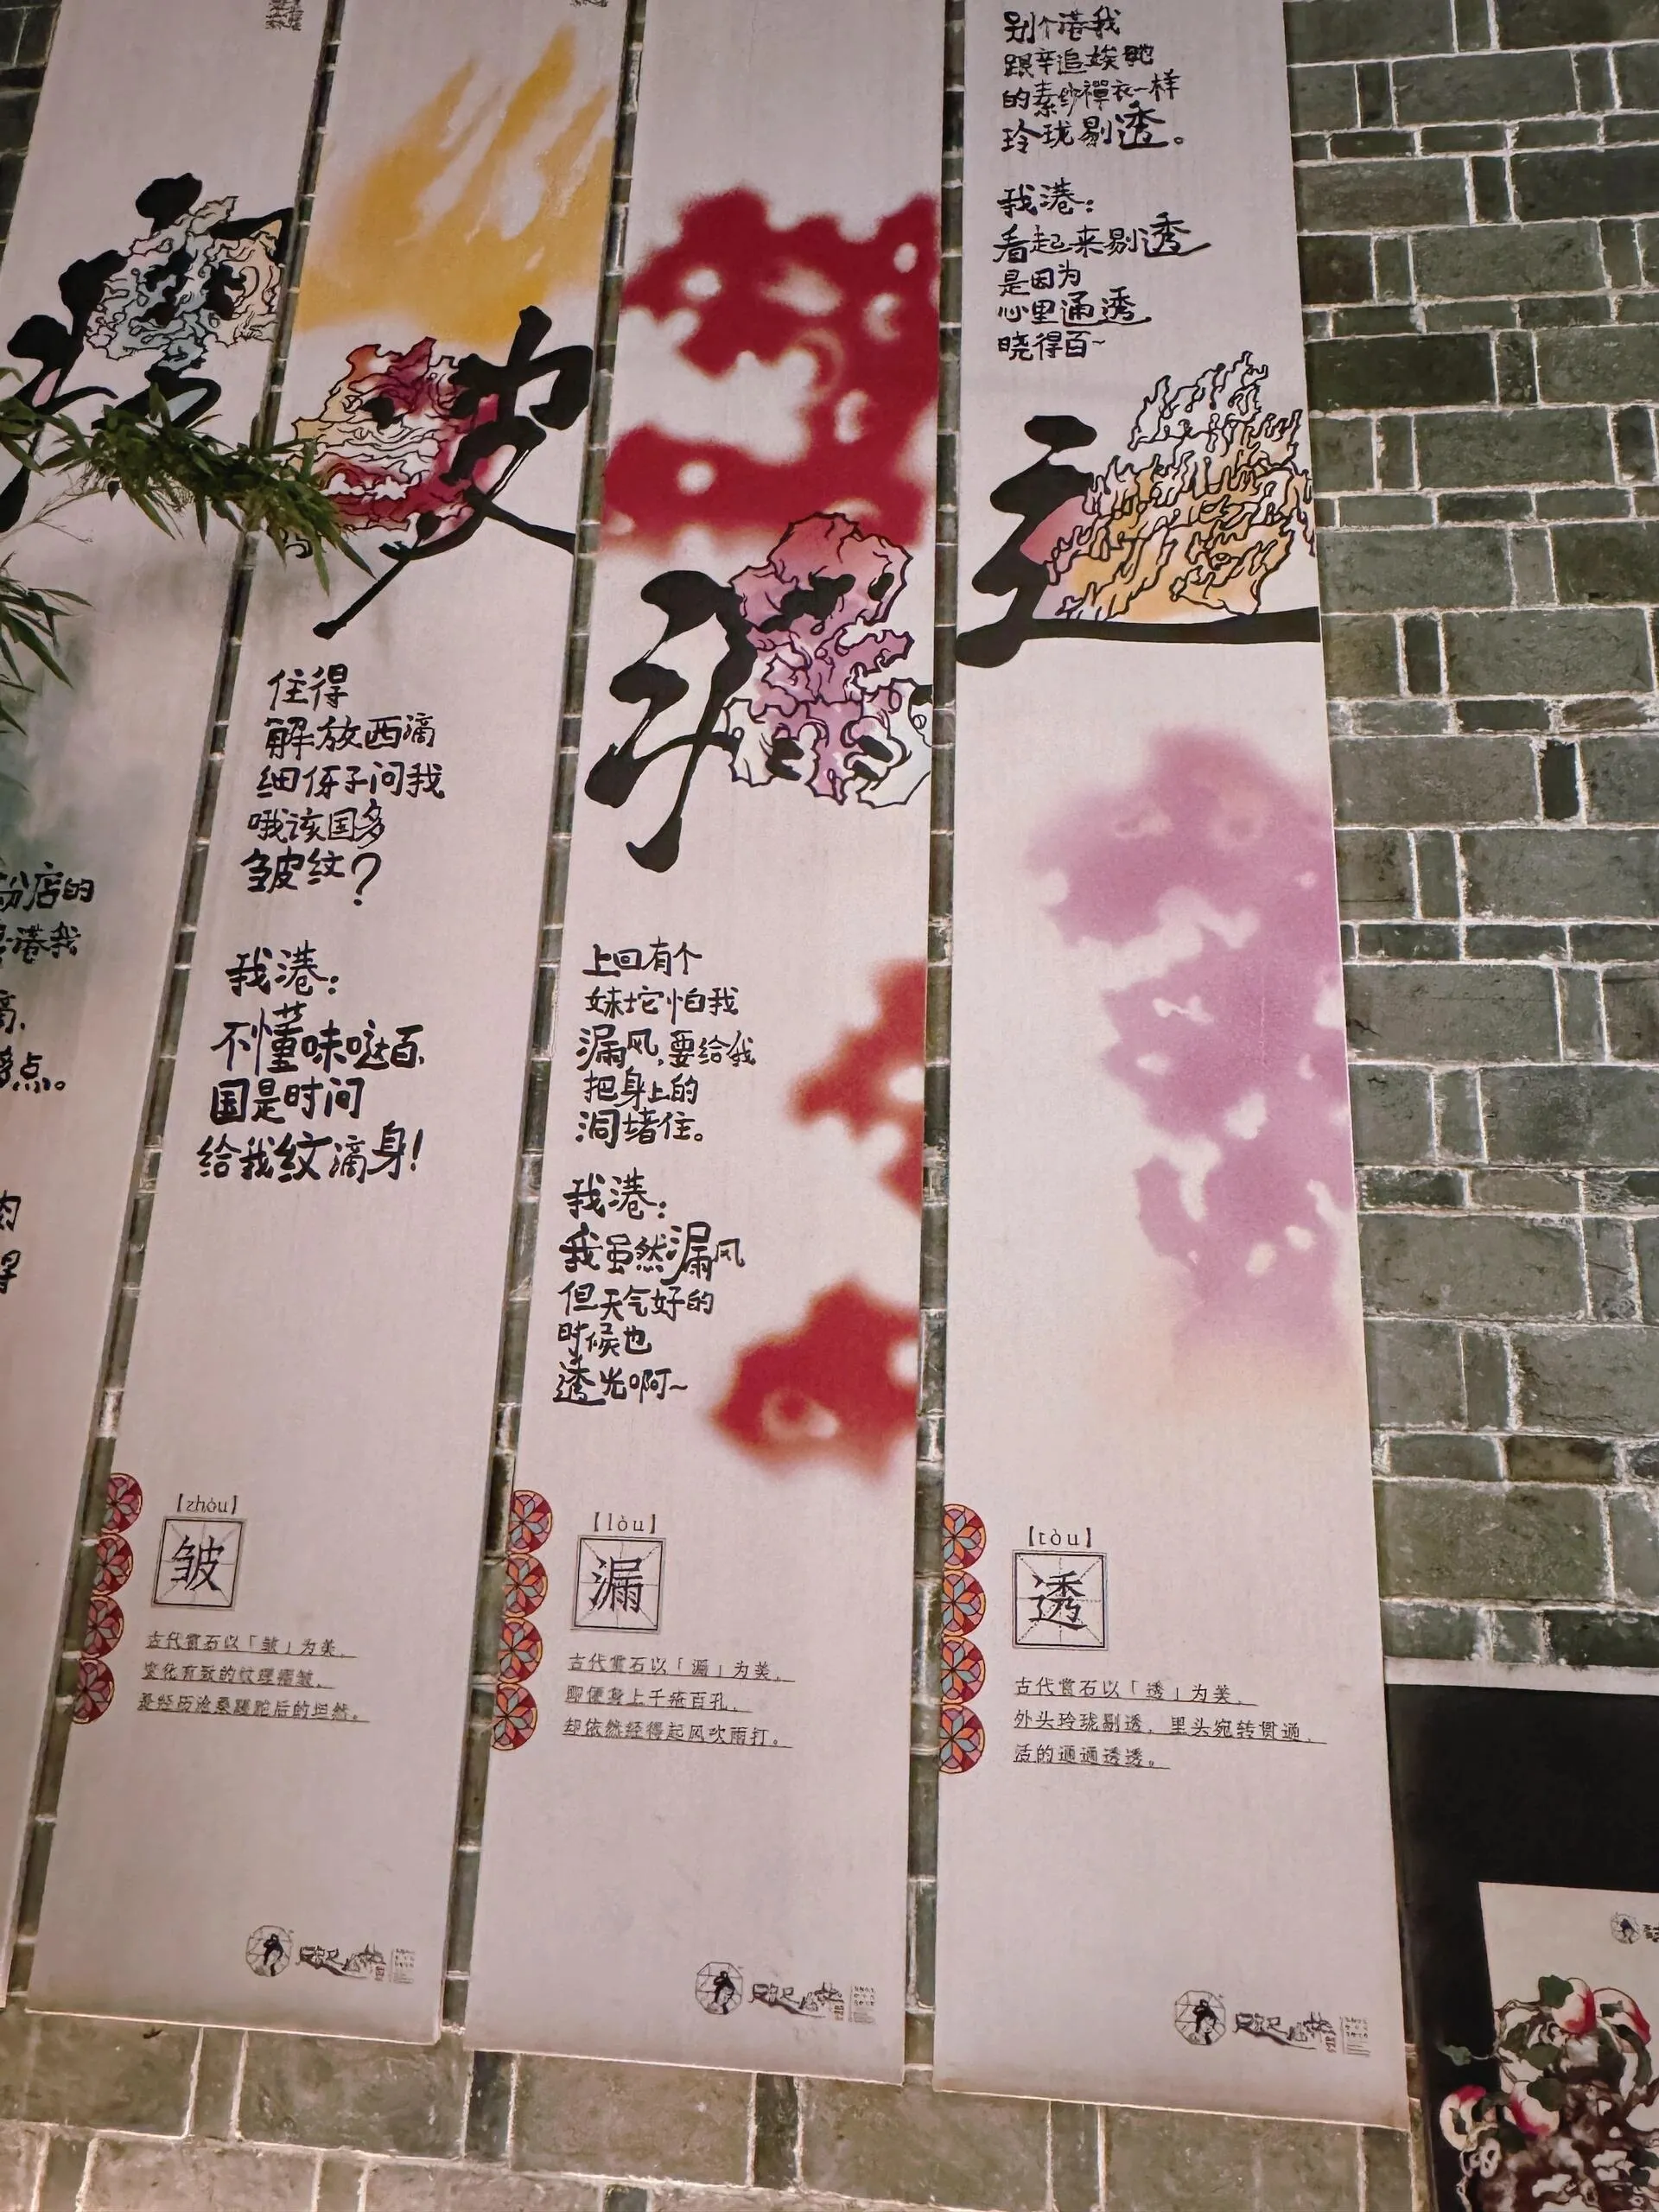 粉店的
港我
点。
住得
解放西滴
细伢子问我
哦该国多
皱皮纹?
我港:
不懂味哒百,
国是时间
给我纹滴身!
【zhòu】
皱
古代赏石以「皱」为美,
变化有致的纹理褶皱,
是经历沧桑蹉跎后的坦然。
上回有个
妹坨怕我
漏风,要给我
把身上的
洞堵住。
我港:
我虽然漏风
但天气好的
时候也
透光啊~
【lòu】
漏
古代赏石以「漏」为美,
即便身上千疮百孔,
却依然经得起风吹雨打。
别个港我
跟辛追娭毑
的素纱襌衣一样
玲珑剔透。
我港:
看起来剔透
是因为
心里通透
晓得百~
【tòu】
透
古代赏石以「透」为美,
外头玲珑剔透,里头宛转贯通,
活的通通透透。